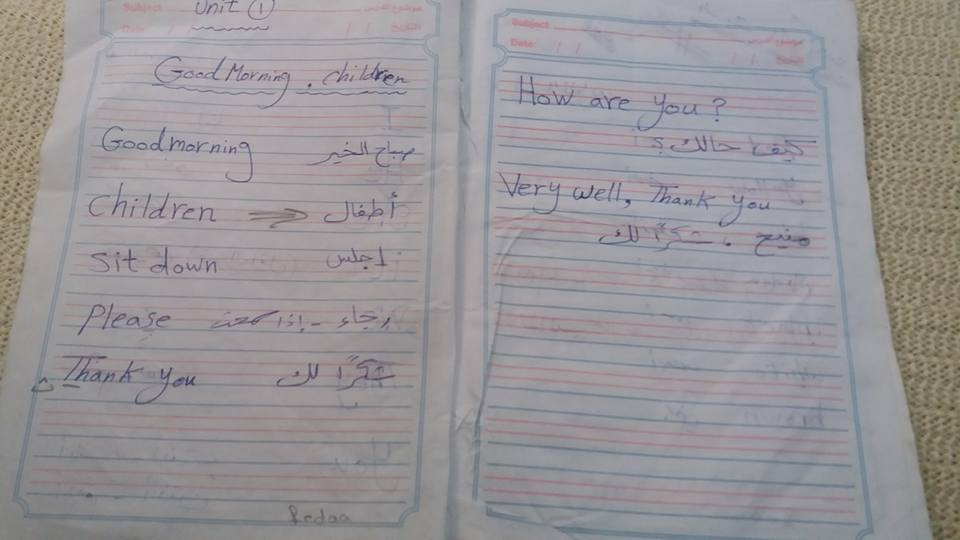 Subject
Unit 1
Date: / / / / التاريخ
Good Morning . children
Goodmorning صباح الخير
Children أطفال
Sit down اجلس
Please رجاء - إذا سمحت
Thank you شكراً لك
Redaa
Subject موضوع الدرس
Date: / / / / التاريخ
How are you?
كيف حالك؟
Very well, Thank you
منيح . شكراً لك